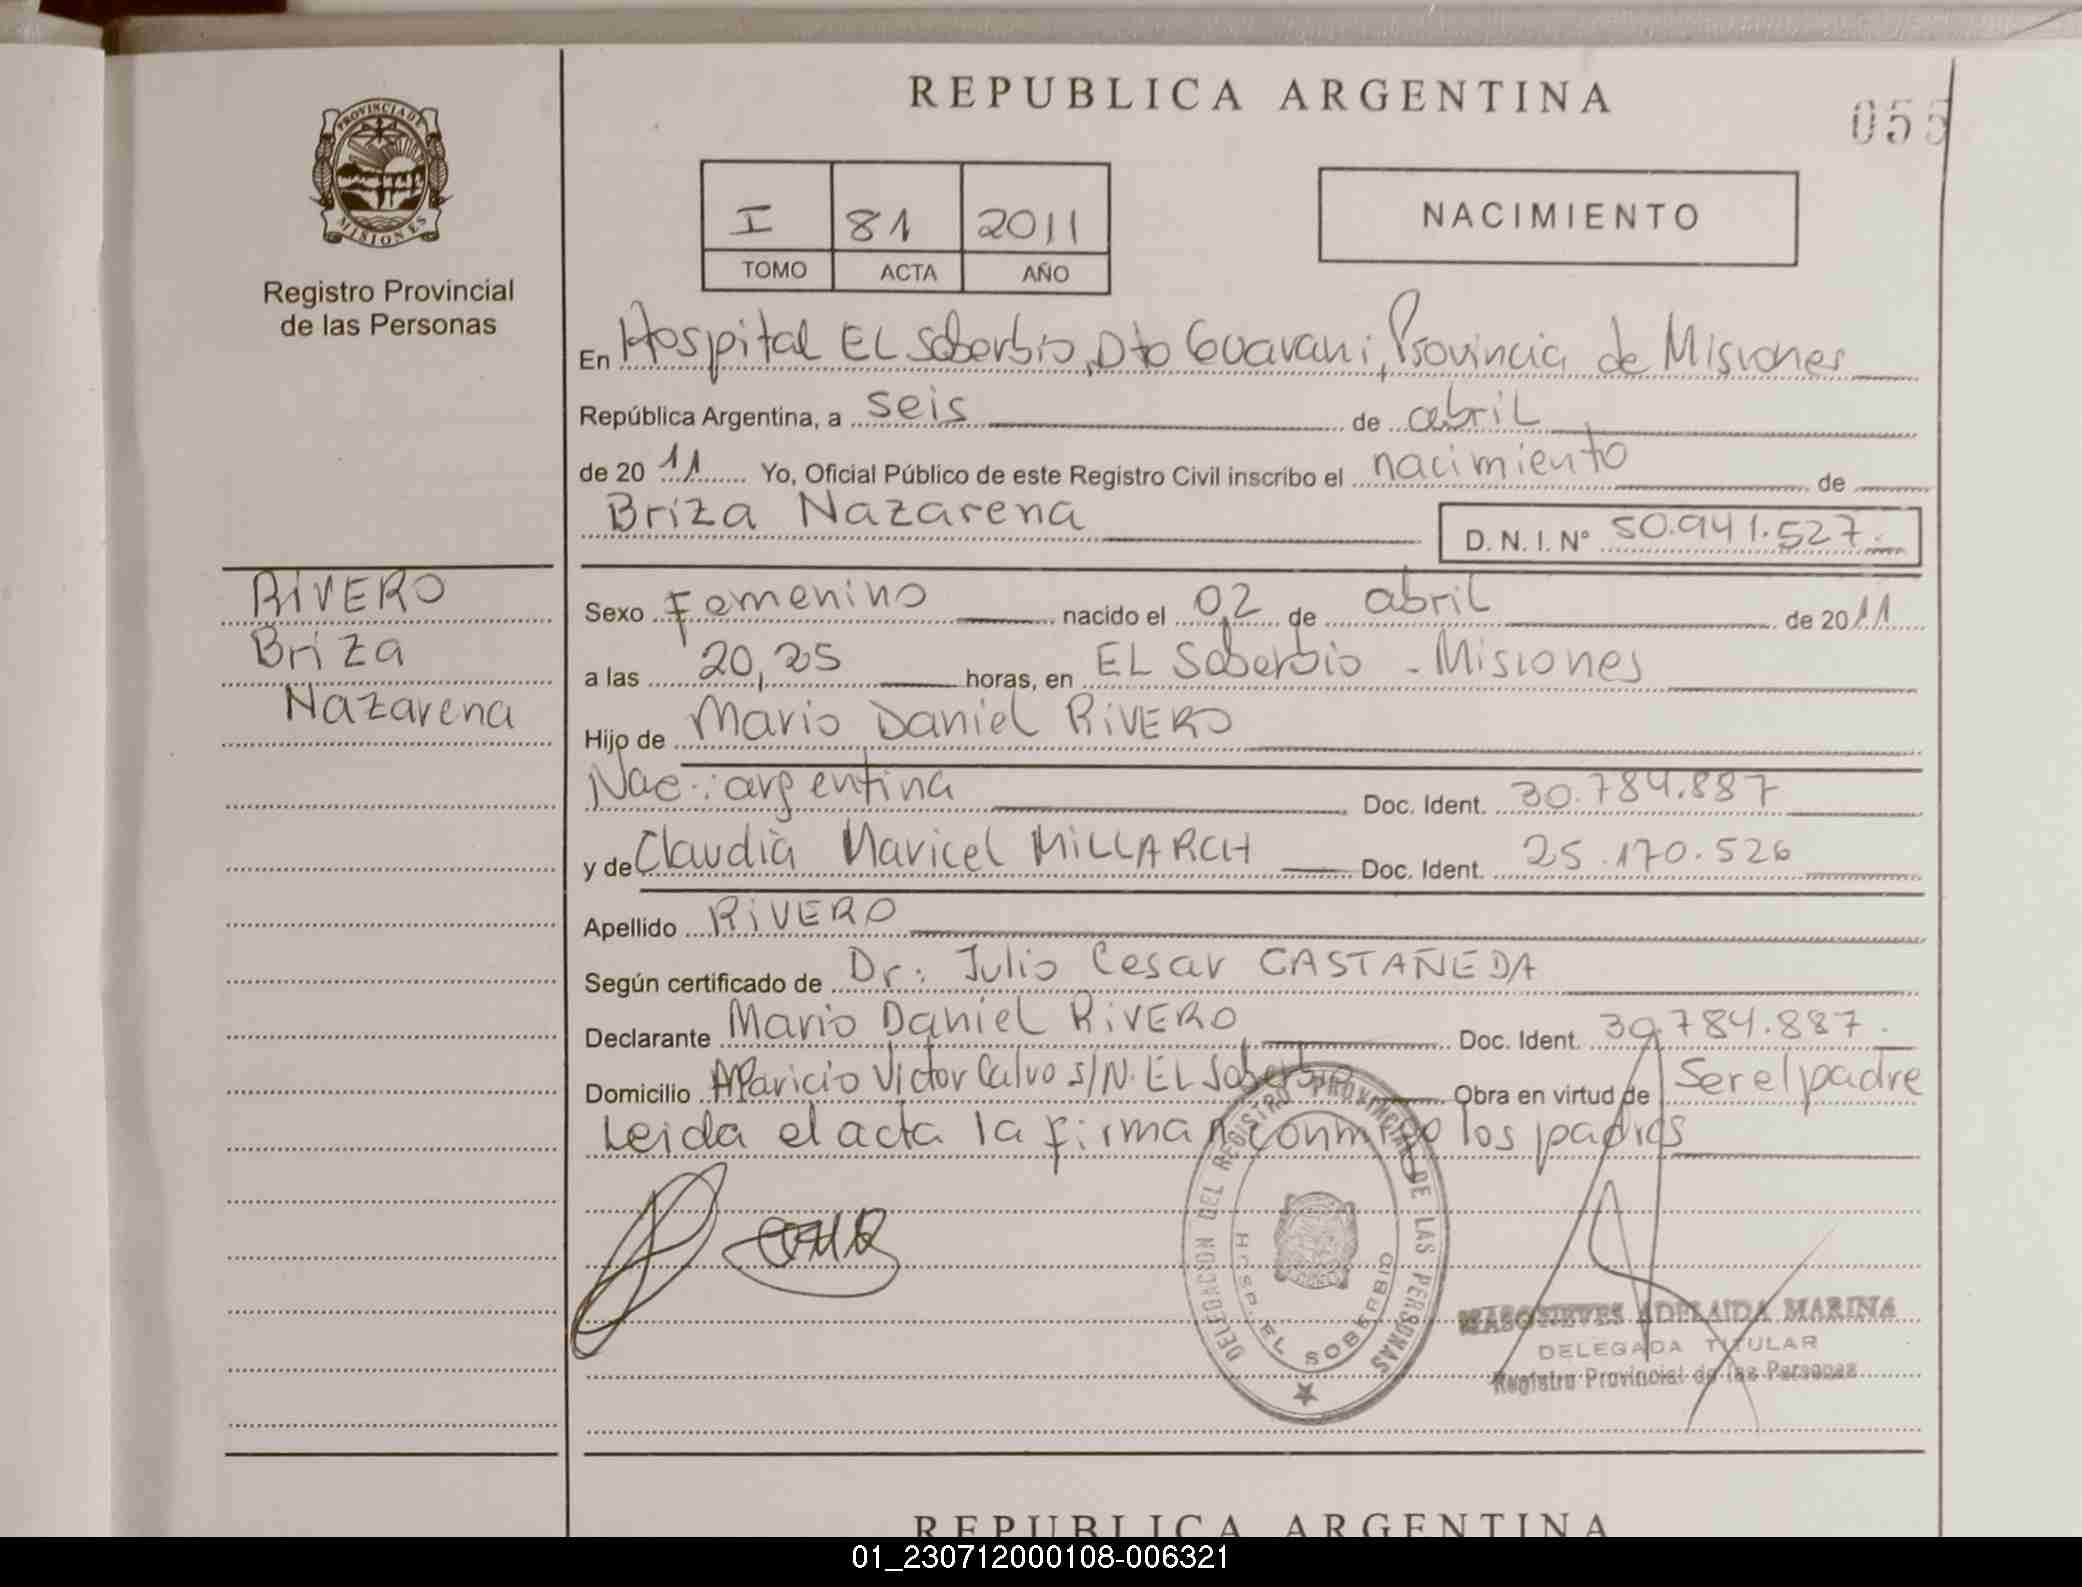 PROVINCIA DE
MISIONES
Registro Provincial
de las Personas
REPUBLICA ARGENTINA
055
I 81 2011
TOMO ACTA AÑO
NACIMIENTO
En Hospital EL Soberbio, Dto Guarani, Provincia de Misiones
República Argentina, a seis de abril
de 20 11 Yo, Oficial Público de este Registro Civil inscribo el nacimiento de
Briza Nazarena D. N. I. N° 50.941.527.
RIVERO
Briza
Nazarena
Sexo Femenino nacido el 02 de abril de 20 11
a las 20,25 horas, en EL Soberbio - Misiones
Hijo de Mario Daniel RIVERO
Nac.: argentina Doc. Ident. 30.784.887
y de Claudia Maricel MILLARCH Doc. Ident. 25.170.526
Apellido RIVERO
Según certificado de Dr: Julio Cesar CASTAÑEDA
Declarante Mario Daniel RIVERO Doc. Ident. 30.784.887.
Domicilio Aparicio Victor Calvo S/N. EL Soberbio Obra en virtud de Ser el padre
Leida el acta la firman conmigo los padres
DELEGACION DEL REGISTRO PROVINCIAL DE LAS PERSONAS
HOSP. EL SOBERBIO
NIEVES ADELAIDA MARINA
DELEGADA TITULAR
Registro Provincial de las Personas
REPUBLICA ARGENTINA
01_230712000108-006321